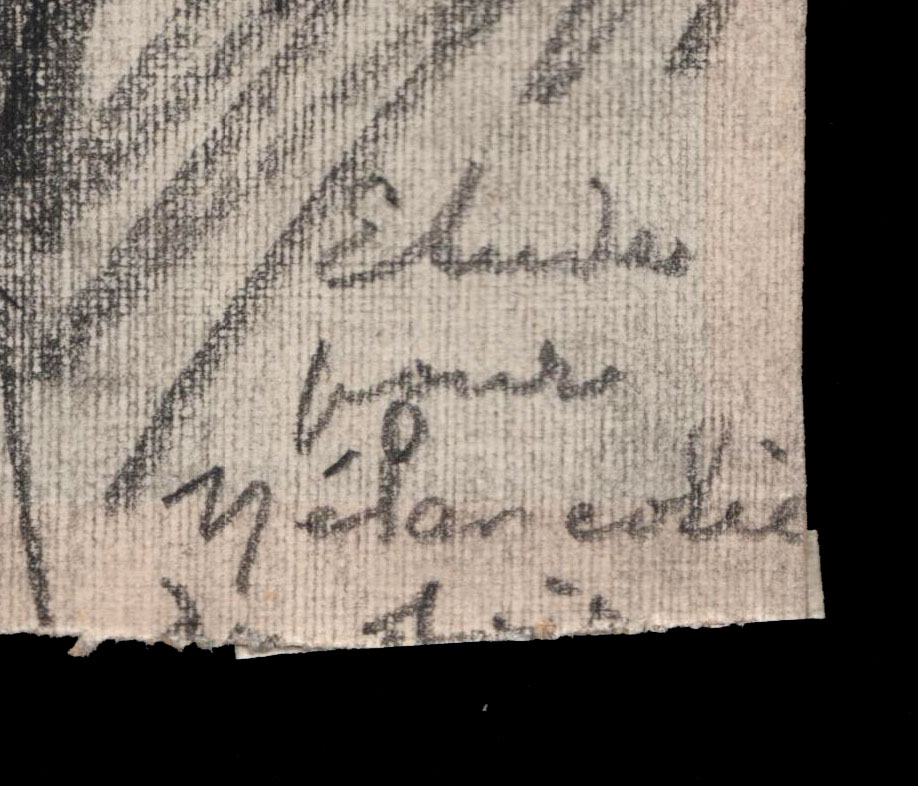 Etudes
pour
Mélancolie
du